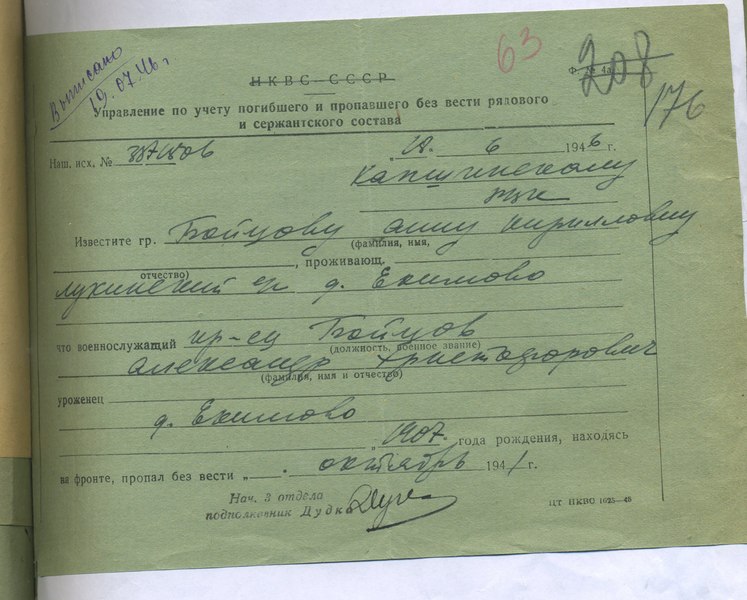 Выписано
19.07.46 г
63
208
176
НКВС СССР
Ф. № 4а
Управление по учету погибшего и пропавшего без вести рядового
и сержантского состава
Наш. исх. №
"18" 6 1946 г.
Капшинскому
Известите гр. Бойцову Анну Кирилловну
(фамилия, имя,
отчество)
, проживающ.
д. Екимово
что военнослужащий кр-ец Бойцов
(должность, военное звание)
Александр Христофорович
(фамилия, имя и отчество)
уроженец
д. Екимово
"1907 года рождения, находясь
на фронте, пропал без вести „ . октябрь 1941 г.
Нач. 3 отдела
подполковник Дудка
ЦТ НКВС 1625—46